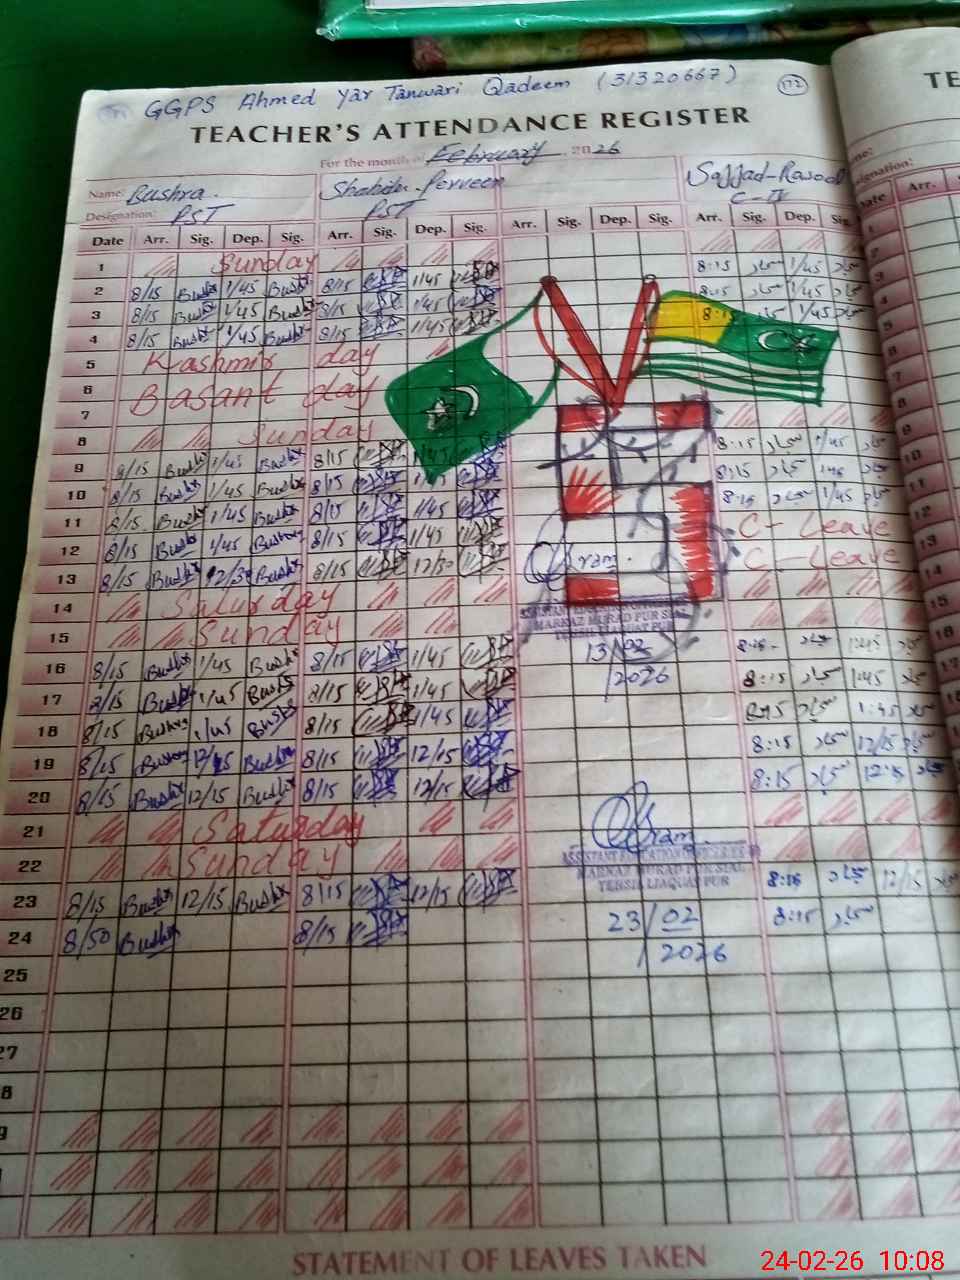 GGPS Ahmed Yar Tanwari Qadeem (31320667) 172
TEACHER'S ATTENDANCE REGISTER
For the month of February 2026
Name: Bushra. Shahida Perveen Sajjad-Rasool
Designation: PST PST C-IV
Date Arr. Sig. Dep. Sig. Arr. Sig. Dep. Sig. Arr. Sig. Dep. Sig. Arr. Sig. Dep. Sig.
1 Sunday
2 8/15 Bushra 1/45 Bushra 8/15 1/45 8:15 سجاد 1/45 سجاد
3 8/15 Bushra 1/45 Bushra 8/15 1/45 8:15 سجاد 1/45 سجاد
4 8/15 Bushra 1/45 Bushra 8/15 1/45 8:15 سجاد 1/45 سجاد
5 Kashmir day
6 Basant day
7
8 Sunday
9 8/15 Bushra 1/45 Bushra 8/15 1/45 8:15 سجاد 1/45 سجاد
10 8/15 Bushra 1/45 Bushra 8/15 1/45 8:15 سجاد سجاد
11 8/15 Bushra 1/45 Bushra 8/15 1/45 8:15 سجاد 1/45 سجاد
12 8/15 Bushra 1/45 Bushra 8/15 1/45 C-Leave
13 8/15 Bushra 12/30 Bushra 8/15 12/30 C-Leave
14 Saturday
15 Sunday
ASSISTANT EDUCATION OFFICER
MARKAZ MURAD PUR SIAL
TEHSIL LIAQUAT PUR
13/02/2026
16 8/15 Bushra 1/45 Bushra 8/15 1/45 8:15 سجاد 1:45 سجاد
17 8/15 Bushra 1/45 Bushra 8/15 1/45 8:15 سجاد 1:45 سجاد
18 8/15 Bushra 1/45 Bushra 8/15 1/45 8:15 سجاد 1:45 سجاد
19 8/15 Bushra 12/15 Bushra 8/15 12/15 8:15 سجاد 12/15 سجاد
20 8/15 Bushra 12/15 Bushra 8/15 12/15 8:15 سجاد 12:15 سجاد
21 Saturday
22 Sunday
ASSISTANT EDUCATION OFFICER
MARKAZ MURAD PUR SIAL
TEHSIL LIAQUAT PUR
23 8/15 Bushra 12/15 Bushra 8/15 12/15 8:15 سجاد 12/15 سجاد
24 8/50 Bushra 8/15 23/02/2026 8:15 سجاد
25
26
27
STATEMENT OF LEAVES TAKEN
24-02-26 10:08